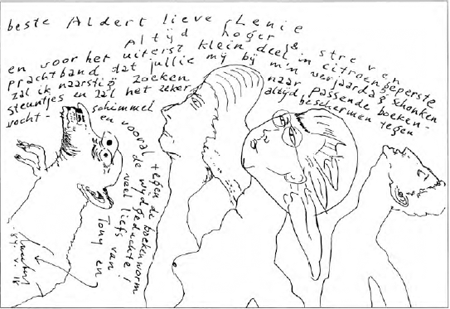 beste Aldert lieve Lenie
Altijd hoger & streven
en voor het uiterst klein deel in citroengeperste
prachtband dat jullie mij bij m'n verjaardag schonken
zal ik naarstig zoeken naar passende boeken-
steuntjes en zal het zeker altijd, beschermen tegen
vocht- schimmel
en vooral tegen de boekenworm
de wijd gedachte!
veel liefs van
Tony en